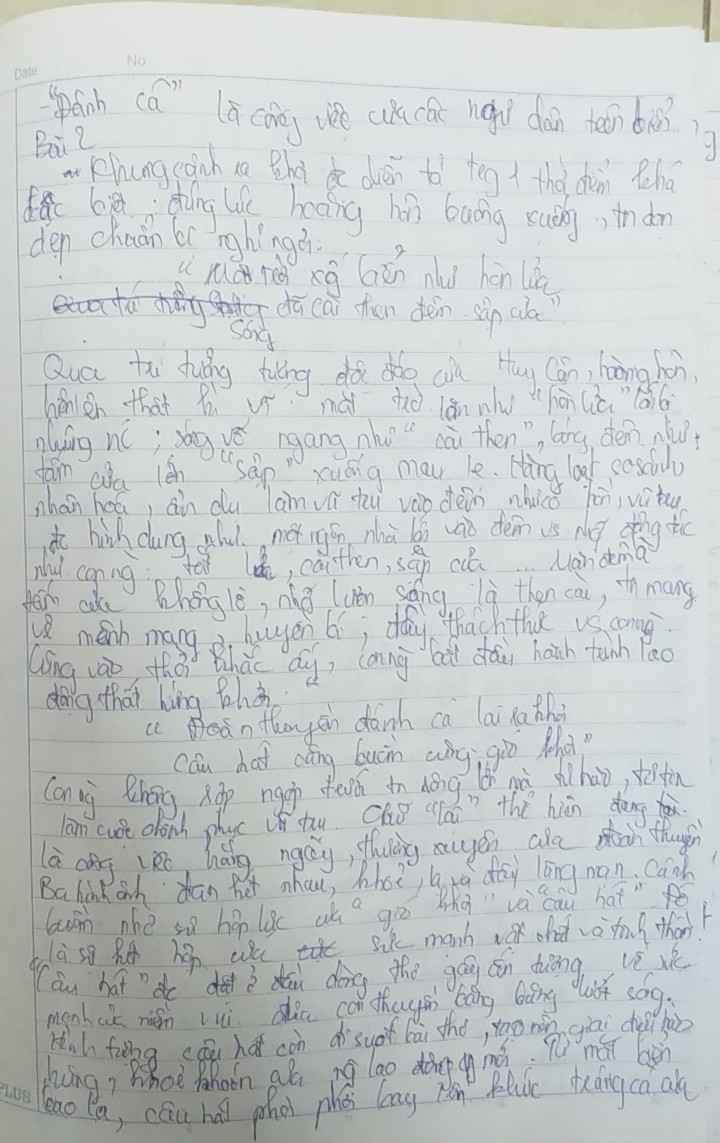 Date No
- "Đánh cá" là công việc của các ngư dân trên biển.
Bài 2
- Khung cảnh ra khơi đc diễn tả trg 1 thời điểm khá
đặc biệt: đúng lúc hoàng hôn buông xuống, tn dọn
dẹp chuẩn bị nghỉ ngơi.
"Mặt trời xuống biển như hòn lửa
Sóng đã cài then đêm sập cửa"
Qua trí tưởng tượng độc đáo của Huy Cận, hoàng hôn
hiện lên thật kì vĩ: mặt trời lớn như "hòn lửa"
sóng vỗ ngang như "cài then", bóng đêm như
tấm cửa lớn "sập" xuống mau lẹ. Hàng loạt so sánh
nhân hoá, ẩn dụ làm vũ trụ vào đêm như có hồn, vũ trụ
đc hình dung như một ngôi nhà lớn vào đêm vs động tác
như con ng: tắt lửa, cài then, sập cửa ... Màn đêm là
tấm cửa khổng lồ, những lượn sóng là then cài, tn mang
vẻ mênh mang, huyền bí, đầy thách thức vs con ng.
Cũng vào thời khắc ấy, con ng bắt đầu hành trình lao
động thật hứng khởi.
"Đoàn thuyền đánh cá lại ra khơi
Câu hát căng buồm cùng gió khơi"
Con ng không rợp ngợp trước tn rộng lớn mà tự hào, tự tin
làm cuộc chinh phục vũ trụ. Chữ "lại" thể hiện
là công việc hàng ngày, thường xuyên của đoàn thuyền
Ba hình ảnh đan kết nhau, khoẻ, lạ và đầy lãng mạn. Cánh
buồm nhờ sự hợp lực của "gió khơi" và "câu hát"
là sự kết hợp của sức mạnh vật chất và tinh thần!
"Câu hát" đc đặt ở đầu dòng thơ gây ấn tượng về sức
mạnh của niềm vui đưa con thuyền băng băng lướt sóng.
Hình tượng câu hát còn đi suốt bài thơ, tạo nên giai điệu hào
hùng, khoẻ khoắn của ng lao động mới. Từ mặt biển
bao la, câu hát phơi phới bay lên khúc tráng ca của